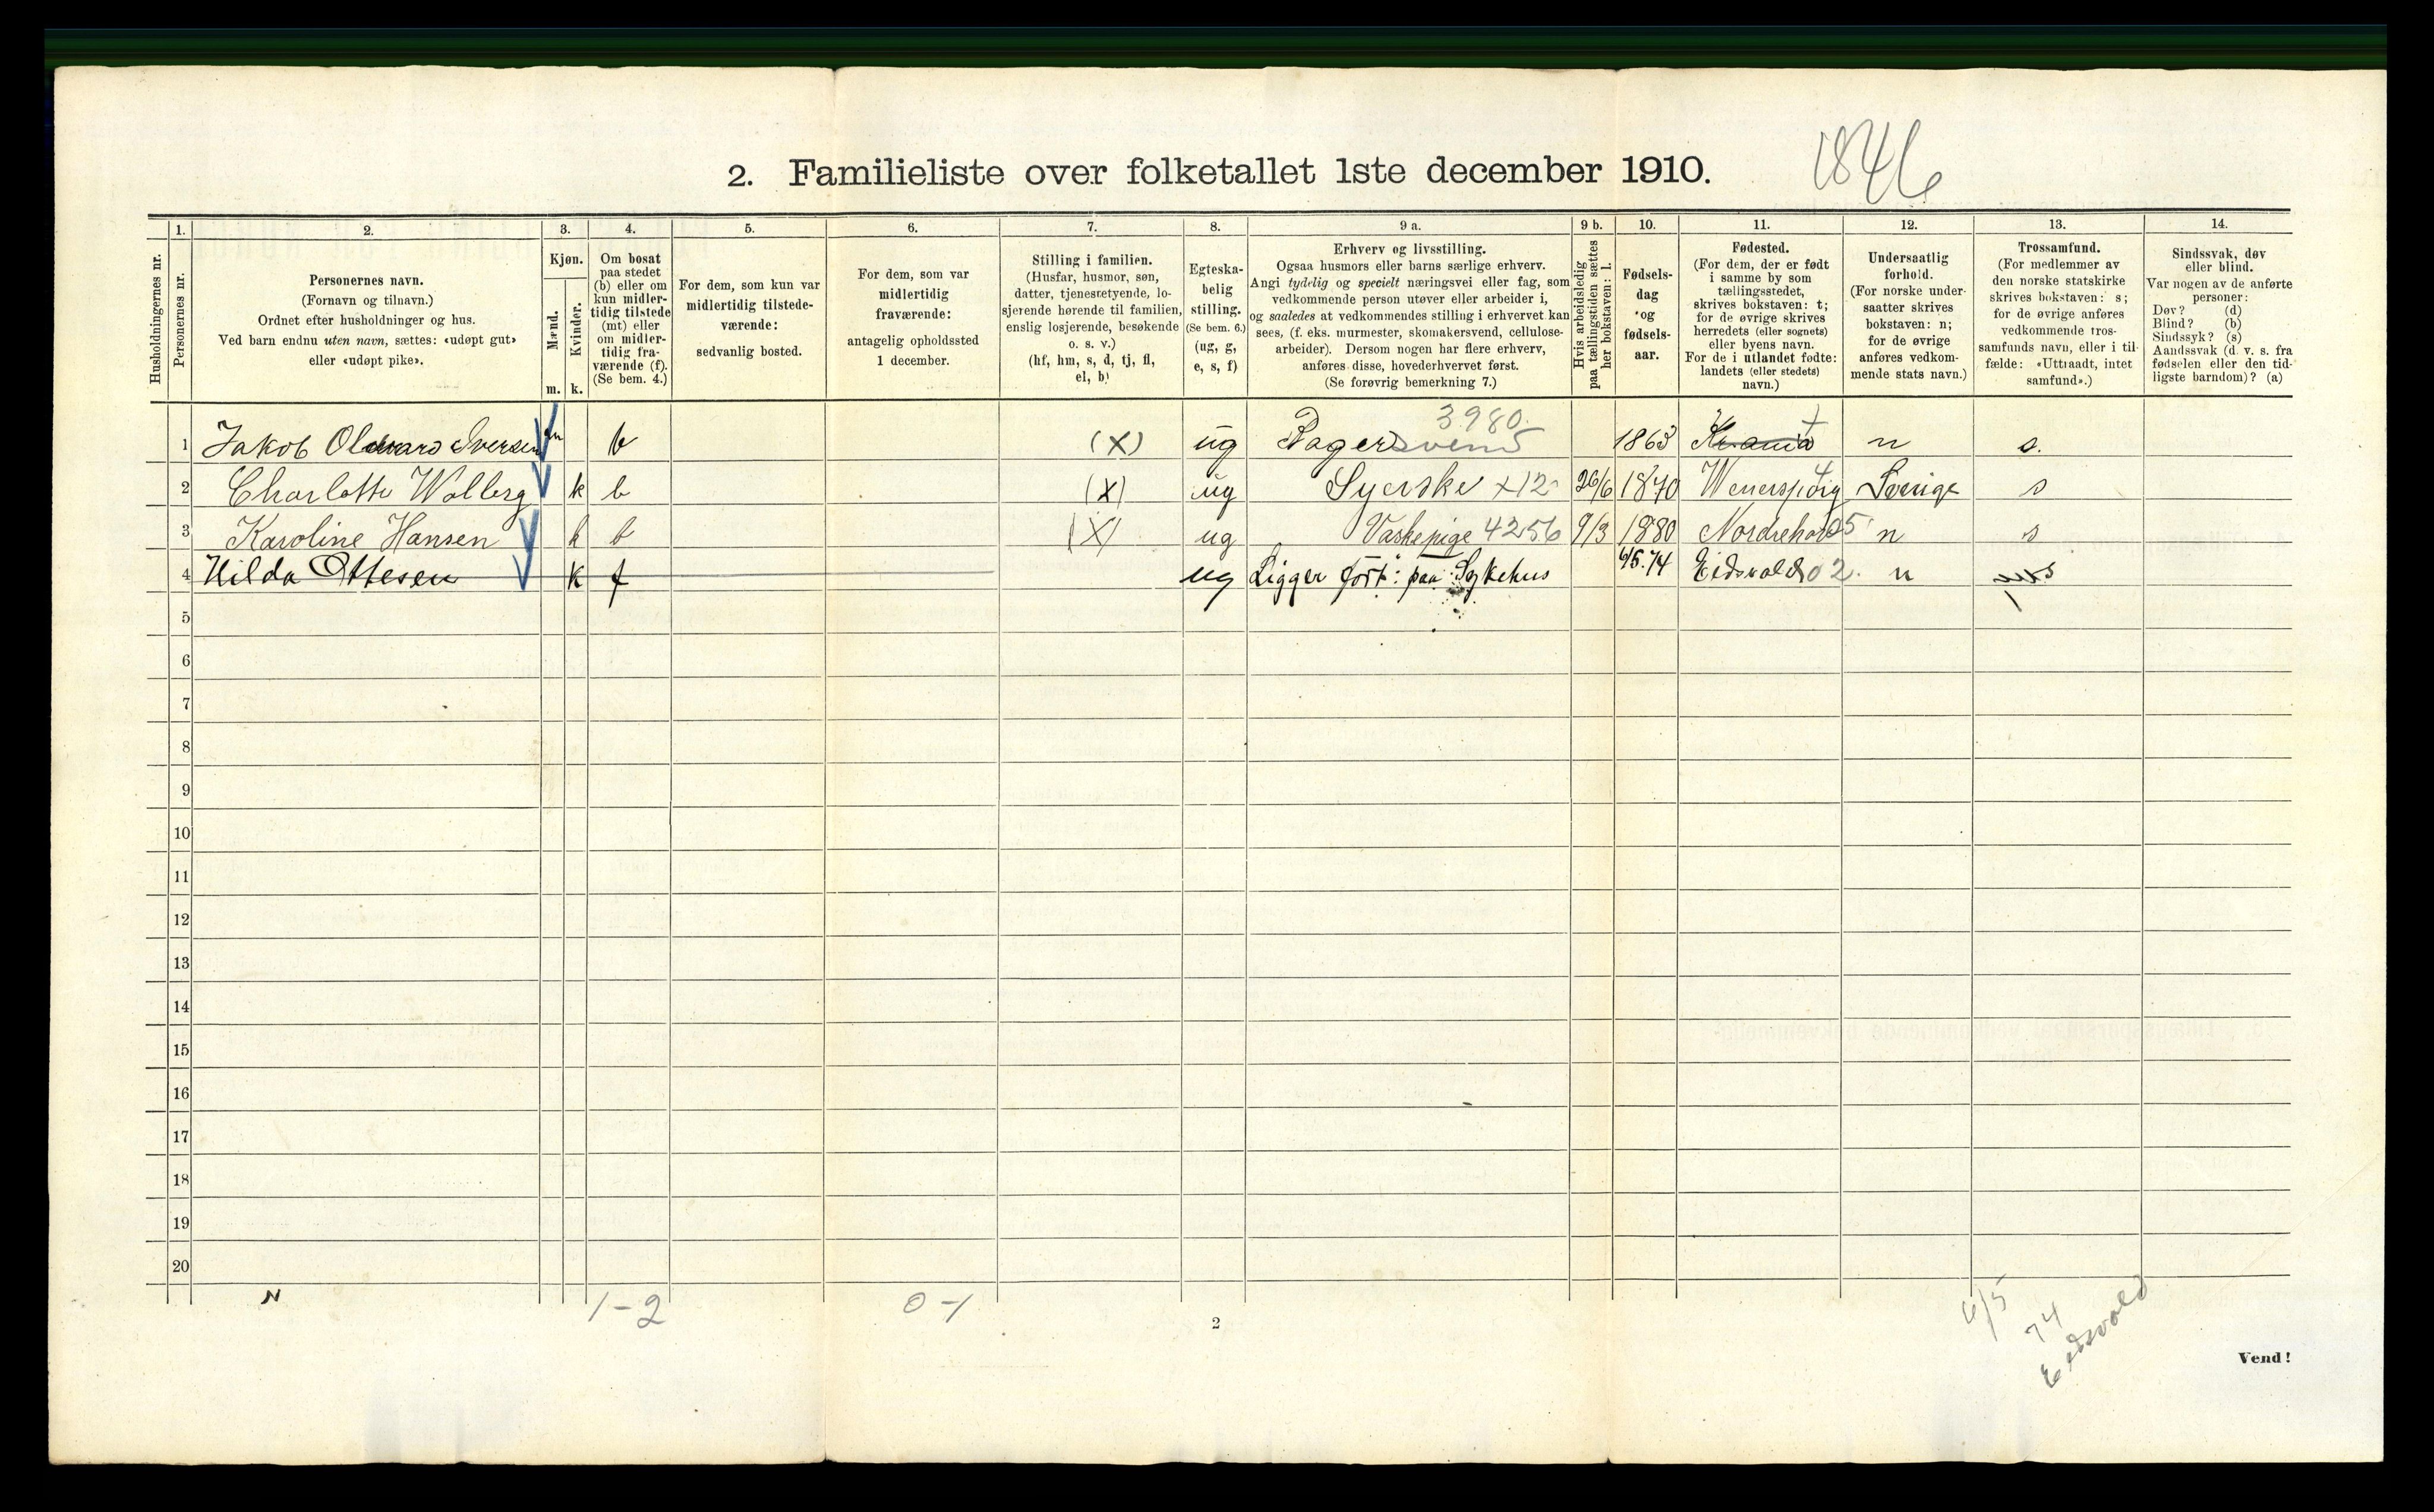 2. Familieliste over folketallet 1ste december 1910. 1846
1. 2. 3. 4. 5. 6. 7. 8. 9 a. 9 b. 10. 11. 12. 13. 14.
Husholdningernes nr.
Personernes nr.
Personernes navn.
(Fornavn og tilnavn.)
Ordnet efter husholdninger og hus.
Ved barn endnu uten navn, sættes: «udøpt gut»
eller «udøpt pike».
Kjøn.
Mænd.
m.
Kvinder.
k.
Om bosat
paa stedet
(b) eller om
kun midler-
tidig tilstede
(mt) eller
om midler-
tidig fra-
værende (f).
(Se bem. 4.)
For dem, som kun var
midlertidig tilstede-
værende:
sedvanlig bosted.
For dem, som var
midlertidig
fraværende:
antagelig opholdssted
1 december.
Stilling i familien.
(Husfar, husmor, søn,
datter, tjenestetyende, lo-
sjerende hørende til familien,
enslig losjerende, besøkende
o. s. v.)
(hf, hm, s, d, tj, fl,
el, b)
Egteska-
belig
stilling.
(Se bem. 6.)
(ug, g,
e, s, f)
Erhverv og livsstilling.
Ogsaa husmors eller barns særlige erhverv.
Angi tydelig og specielt næringsvei eller fag, som
vedkommende person utøver eller arbeider i,
og saaledes at vedkommendes stilling i erhvervet kan
sees, (f. eks. murmester, skomakersvend, cellulose-
arbeider). Dersom nogen har flere erhverv,
anføres disse, hovederhvervet først.
(Se forøvrig bemerkning 7.)
Hvis arbeidsledig
paa tællingstiden sættes
her bokstaven: l.
Fødsels-
dag
og
fødsels-
aar.
Fødested.
(For dem, der er født
i samme by som
tællingsstedet,
skrives bokstaven: t;
for de øvrige skrives
herredets (eller sognets)
eller byens navn.
For de i utlandet fødte:
landets (eller stedets)
navn.)
Undersaatlig
forhold.
(For norske under-
saatter skrives
bokstaven: n;
for de øvrige
anføres vedkom-
mende stats navn.)
Trossamfund.
(For medlemmer av
den norske statskirke
skrives bokstaven: s;
for de øvrige anføres
vedkommende tros-
samfunds navn, eller i til-
fælde: «Uttraadt, intet
samfund».)
Sindssvak, døv
eller blind.
Var nogen av de anførte
personer:
Døv? (d)
Blind? (b)
Sindssyk? (s)
Aandssvak (d. v. s. fra
fødselen eller den tid-
ligste barndom)? (a)
3980.
1 Jakob Iversen m b (X) ug Bagersvend 1863 Kr.ania t n s.
2 Charlotte Wolberg k b (X) ug Syerske x12 26/6 1870 Sverige s
3 Karoline Hansen k b (X) ug Vaskepige 4256 9/3 1880 n s
4 Hilda Ottesen k f ug Ligger fort: paa Sykehus 6/5.74 Eidsvold 02. n s
5
6
7
8
9
10
11
12
13
14
15
16
17
18
19
20
N 1-2 0-1
2
6/5 74 Eidsvold
Vend!